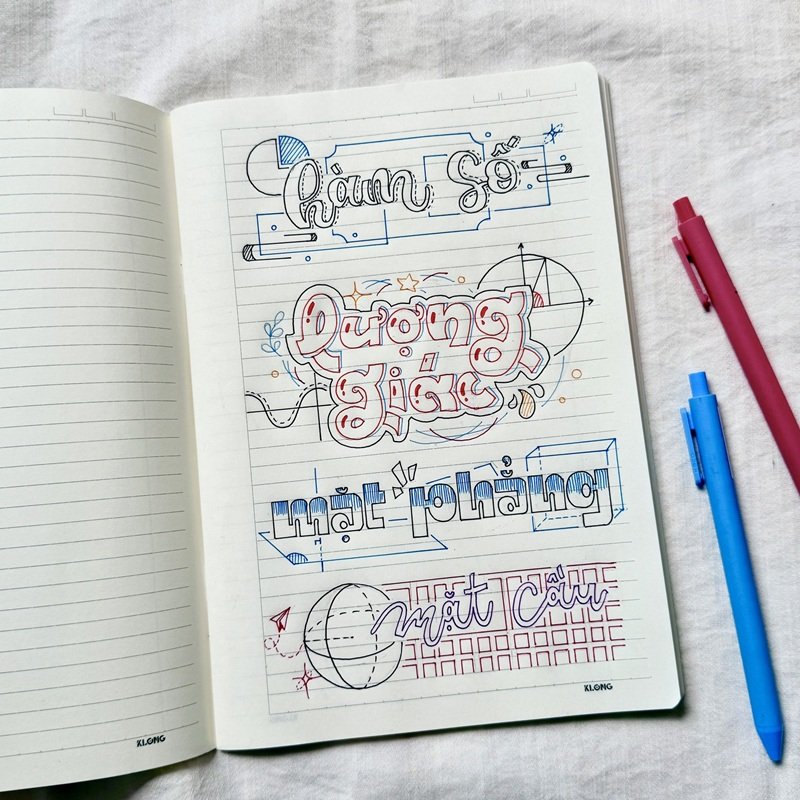 hàm số
lượng
giác
mặt phẳng
mặt cầu
KLONG
KLONG